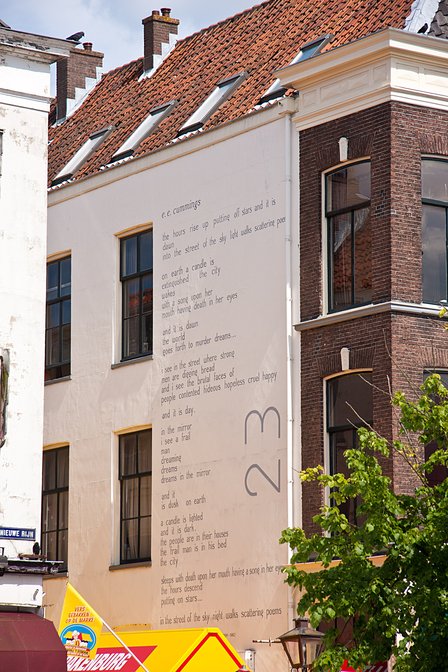 e.e. cummings
the hours rise up putting off stars and it is
dawn
into the street of the sky light walks scattering poems
on earth a candle is
extinguished the city
wakes
with a song upon her
mouth having death in her eyes
and it is dawn
the world
goes forth to murder dreams...
i see in the street where strong
men are digging bread
and i see the brutal faces of
people contented hideous hopeless cruel happy
and it is day,
in the mirror
i see a frail
man
dreaming
dreams
dreams in the mirror
and it
is dusk on earth
a candle is lighted
and it is dark.
the people are in their houses
the frail man is in his bed
the city
sleeps with death upon her mouth having a song in her eyes
the hours descend
putting on stars...
in the street of the sky night walks scattering poems
23
NIEUWE RIJN
VERS
GEBAKKEN
OP DE MARKT